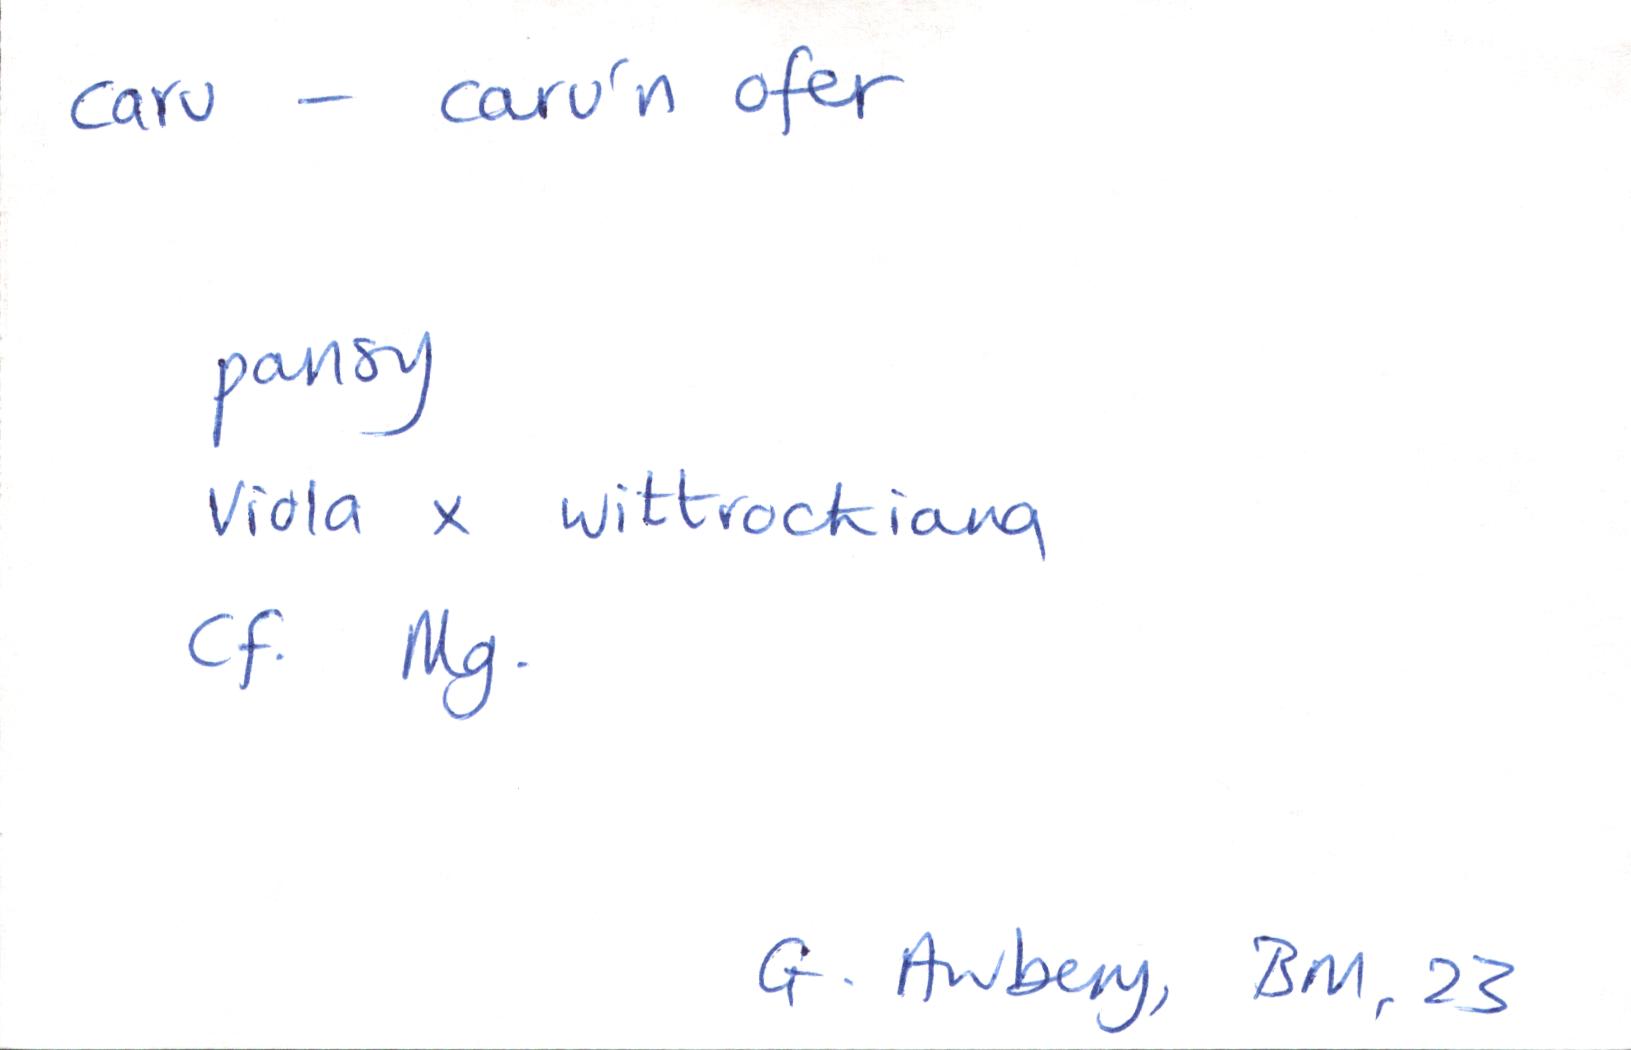 caru – caru'n ofer
pansy
Viola x wittrockiana
Cf. Mg.
G. Awbery, BM, 23